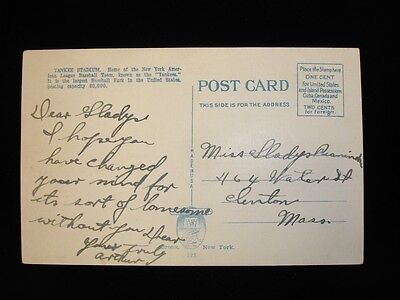 YANKEE STADIUM, Home of the New York Amer-
ican League Baseball Team, known as the "Yankees."
It is the largest Baseball Park in the United States.
Seating capacity 80,000.
Dear Gladys
I hope you
have changed
your mind for
its sort of lonesome
without you Dear
Yours truly
Arthur
POST CARD
THIS SIDE IS FOR THE ADDRESS
Place the Stamp here
ONE CENT
for United States
and Island Possessions
Cuba, Canada and
Mexico.
TWO CENTS
for Foreign.
Miss Gladys
464 Water St
Clinton
Mass.
MADE IN U.S.A.
New York.
123